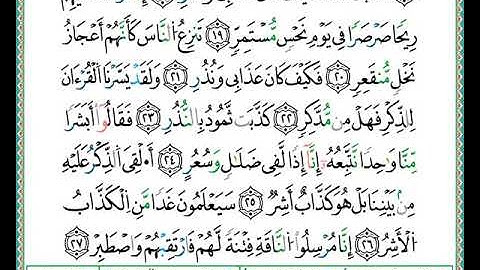 رِيحًا صَرْصَرًا فِي يَوْمِ نَحْسٍ مُّسْتَمِرٍّ ١٩ تَنزِعُ النَّاسَ كَأَنَّهُمْ أَعْجَازُ
نَخْلٍ مُّنقَعِرٍ ٢٠ فَكَيْفَ كَانَ عَذَابِي وَنُذُرِ ٢١ وَلَقَدْ يَسَّرْنَا الْقُرْءَانَ
لِلذِّكْرِ فَهَلْ مِن مُّدَّكِرٍ ٢٢ كَذَّبَتْ ثَمُودُ بِالنُّذُرِ ٢٣ فَقَالُوٓا۟ أَبَشَرًا
مِّنَّا وَٰحِدًا نَّتَّبِعُهُۥٓ إِنَّآ إِذًا لَّفِي ضَلَٰلٍ وَسُعُرٍ ٢٤ أَءُلْقِيَ الذِّكْرُ عَلَيْهِ
مِنۢ بَيْنِنَا بَلْ هُوَ كَذَّابٌ أَشِرٌ ٢٥ سَيَعْلَمُونَ غَدًا مَّنِ الْكَذَّابُ
الْأَشِرُ ٢٦ إِنَّا مُرْسِلُوا۟ النَّاقَةِ فِتْنَةً لَّهُمْ فَارْتَقِبْهُمْ وَاصْطَبِرْ ٢٧